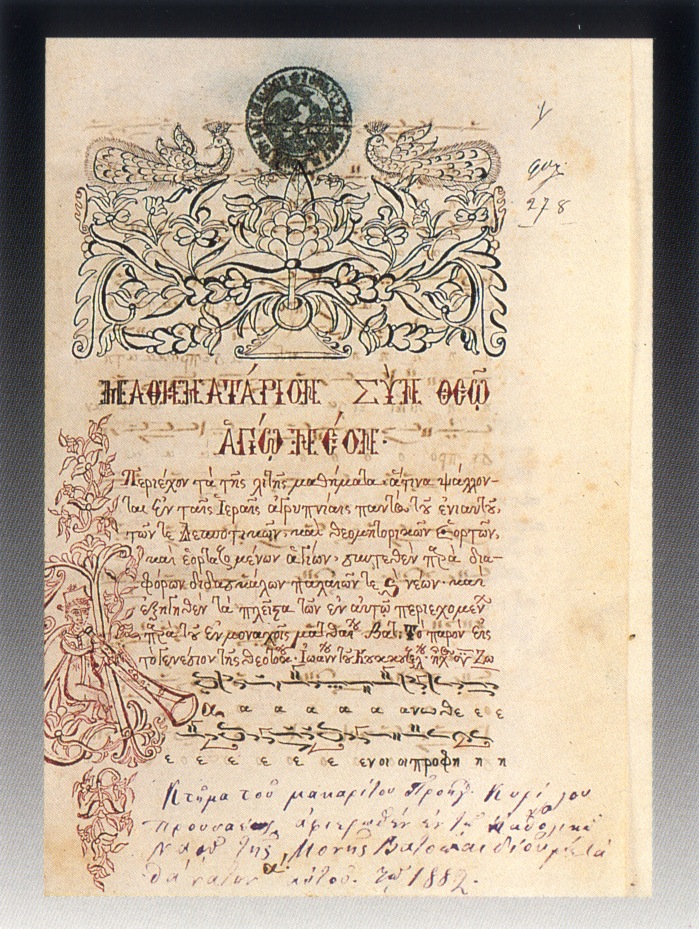 278
ΜΑΘΗΜΑΤΆΡΙΟΝ ΣῪΝ ΘΕΩ͂
ἉΓΊΩ ΝΈΟΝ·
Περιέχον τὰ τῆς λιτῆς μαθήματα· ἅτινα ψάλλον-
ται ἐν ταῖς Ἱεραῖς ἀγρυπνίαις παντὸς τοῦ ἐνιαυτοῦ,
τῶν τε Δεσποτικῶν, καὶ θεομητορικῶν Ἑορτῶν,
καὶ ἑορταζομένων ἁγίων, παρὰ δια-
φόρων διδασκάλων παλαιῶν τε ϗ νέων· καὶ
ἐξηγηθὲν τὰ πλεῖστα τῶν ἐν αὐτῷ περιεχομέν
παρὰ τοῦ ἐν μοναχοῖς ματθαί Βατ, Τὸ παρὸν εἰς
τὸ γενέσιον τῆς Θεοτόκ Ἰωάνν τοῦ Κουκουζέλ ἦχ
α α α α α α ανωθε ε ε
ε ε ε ε ε ε ενοι οι προφη η η
Κτῆμα τοῦ μακαρίτου Προηγ. Κυρίλλου
Προυσαέως ἀφιερωθὲν ἐν τῷ Καθολικῷ
Ναῷ τῆς Μονῆς Βατοπαιδίου μετὰ
θάνατον αὐτοῦ. τῷ 1882.